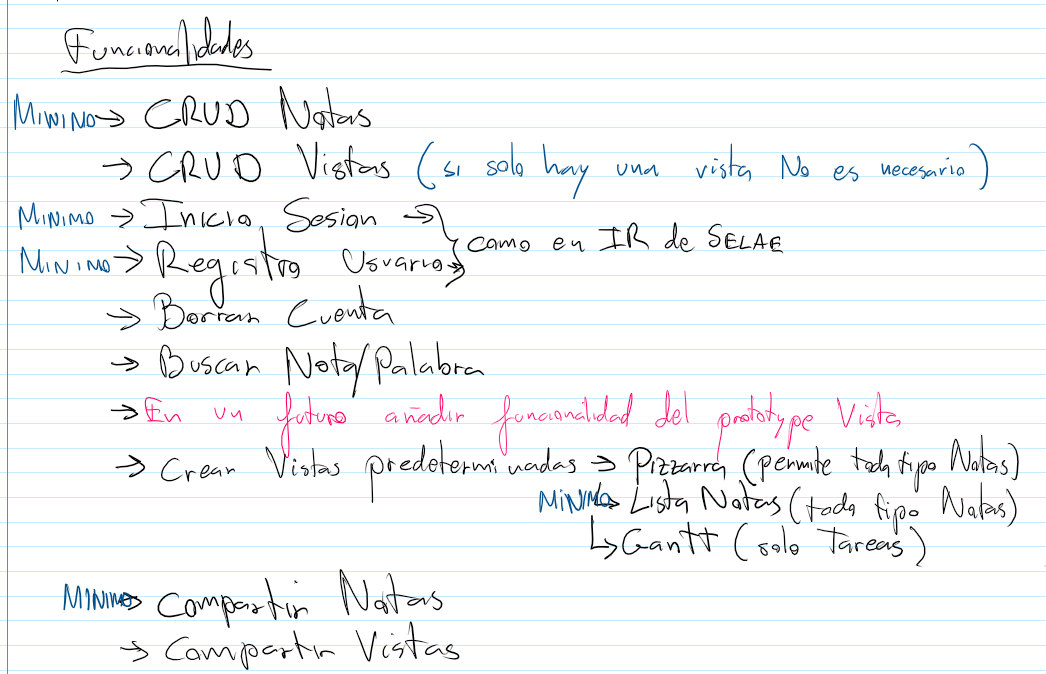 Funcionalidades
MINIMO → CRUD Notas
→ CRUD Vistas (si solo hay una vista No es necesario)
MINIMO → Inicio Sesion →} como en IR de SELAE
MINIMO → Registro Usuario →}
→ Borrar Cuenta
→ Buscar Nota/Palabra
→ En un futuro añadir funcionalidad del prototype Vista
→ Crear Vistas predeterminadas → Pizzarra (permite todo tipo Notas)
MINIMO ↳ Lista Notas (todo tipo Notas)
↳ Gantt (solo Tareas)
MINIMO → Compartir Notas
→ Compartir Vistas